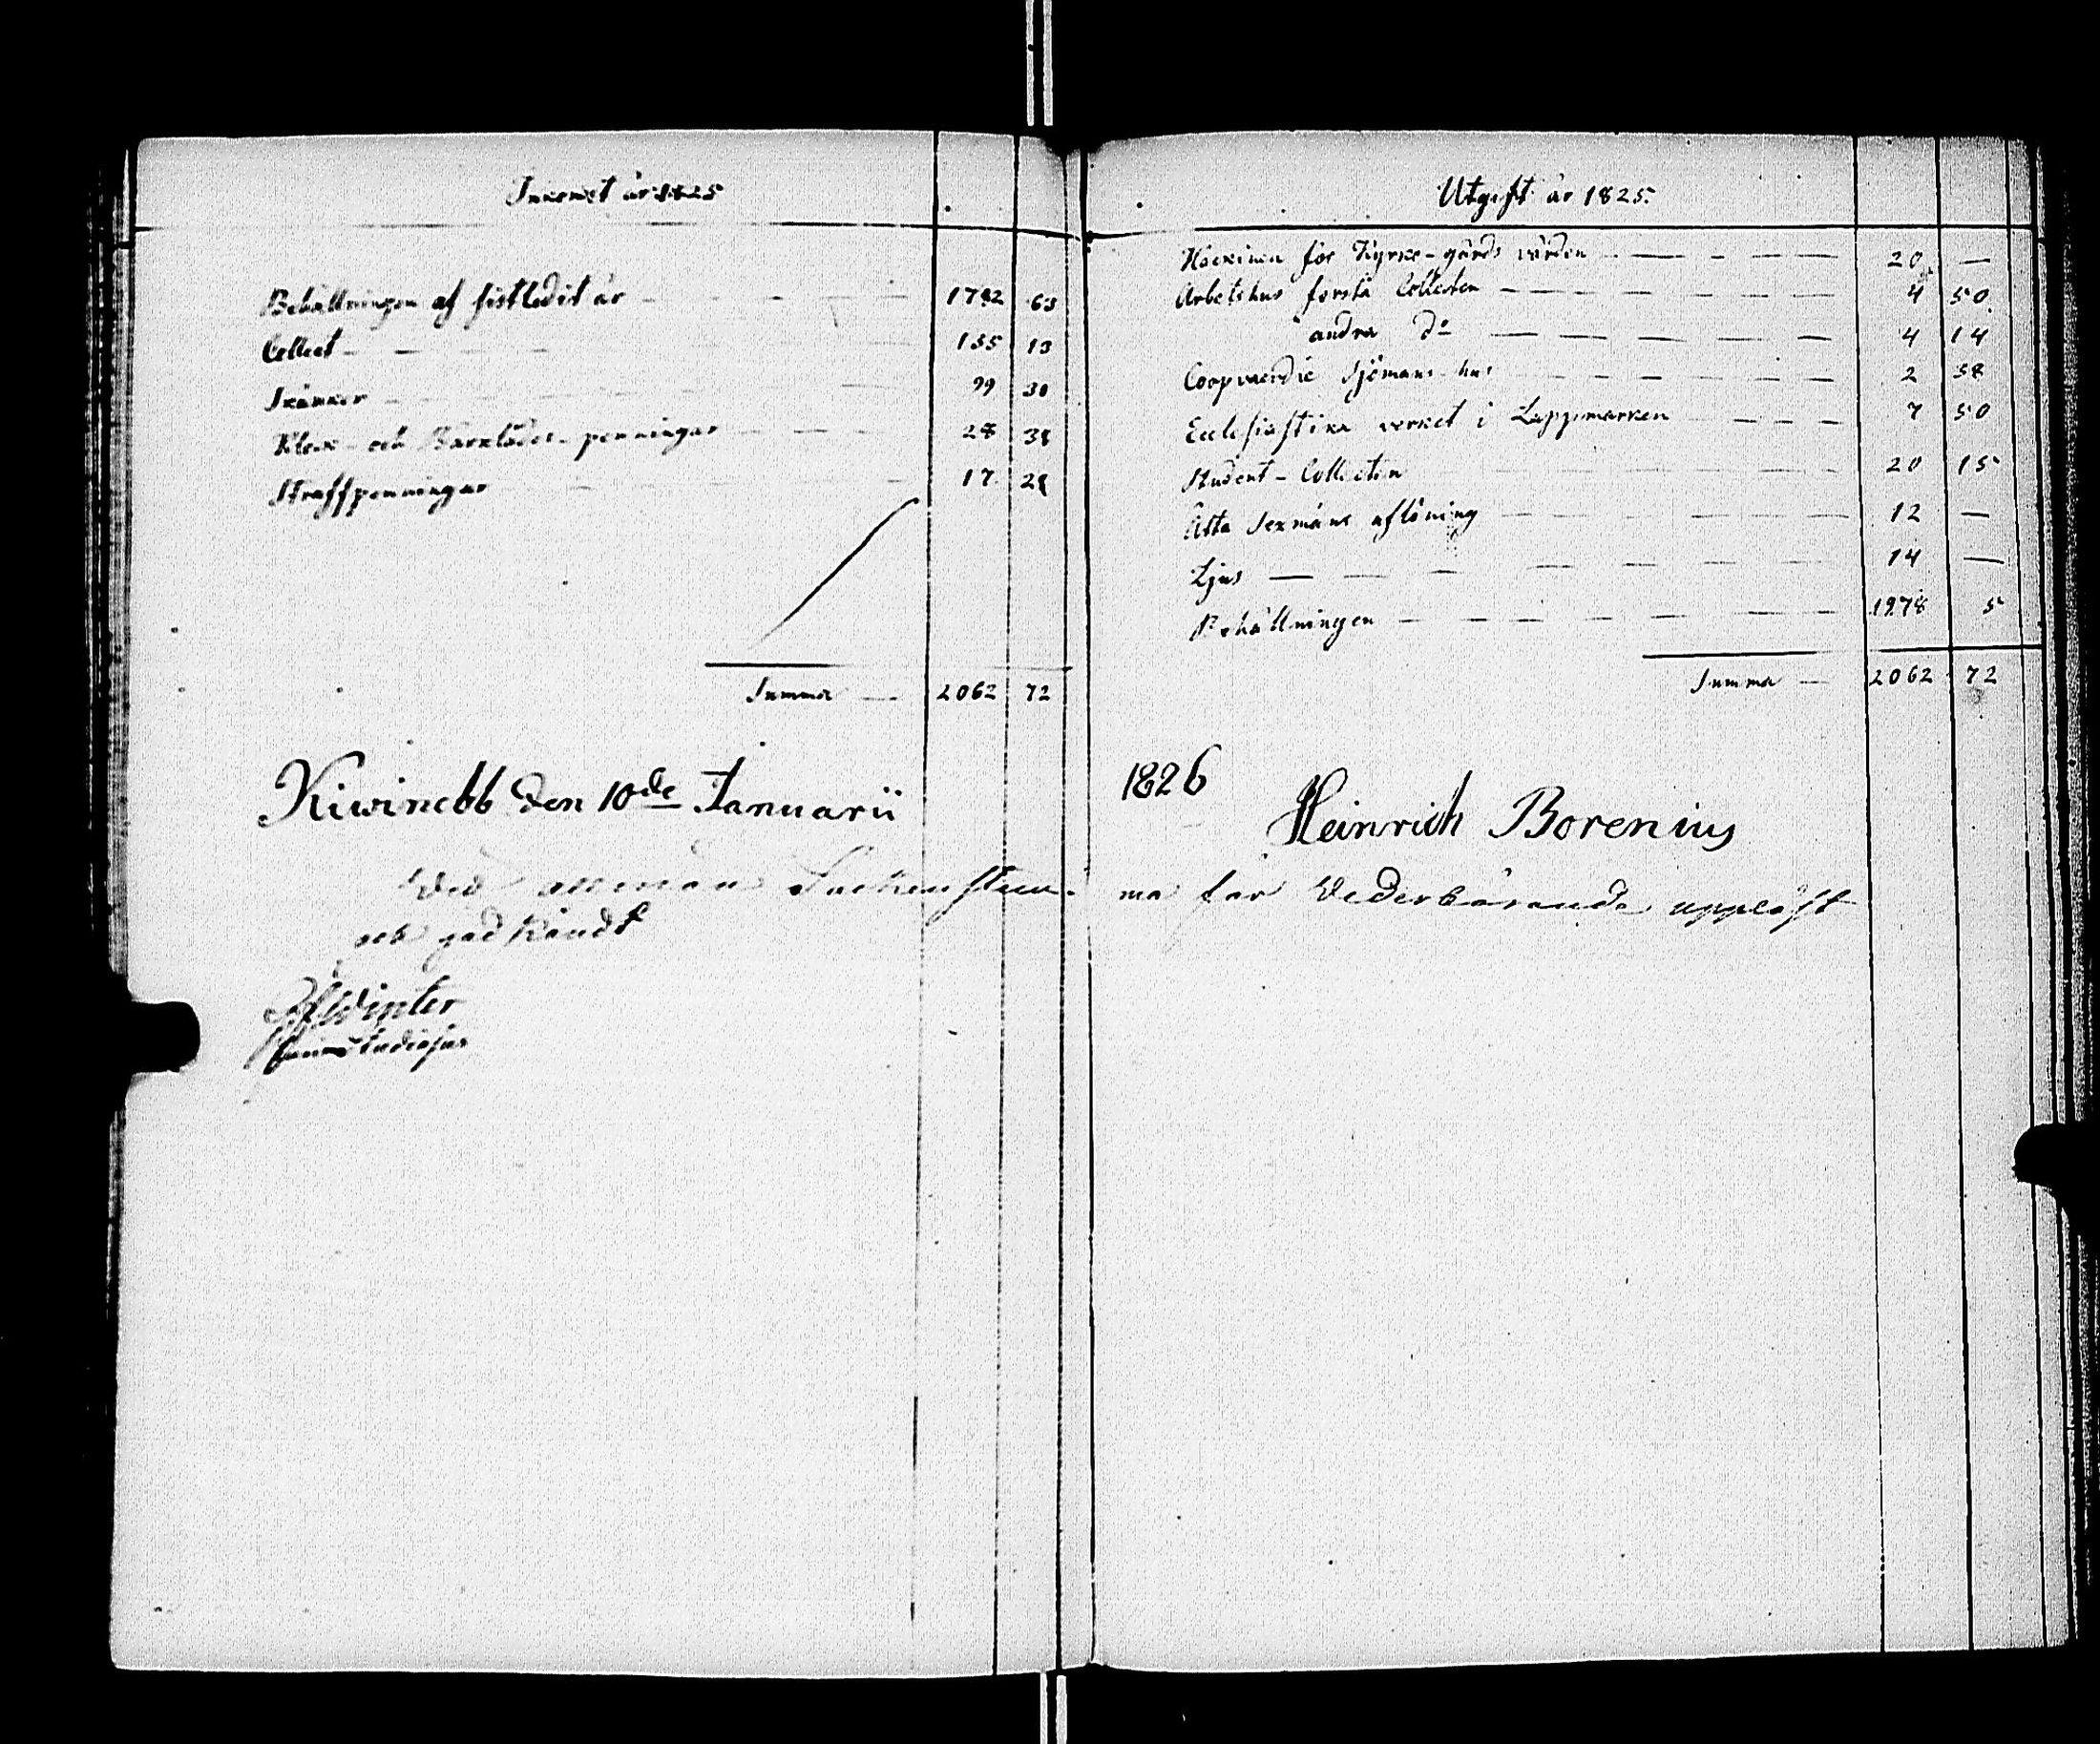 Inkomst år 1825
Behållningen af sistledit år — 1782 63
Collect — 135 13
Skänker — 99 30
Klock- och Bårklädes-penningar — 28 38
Straffpenningar — 17 28
Summa — 2062 72
Kiwinebb den 10de Januarii
Wid allmän Sockenstäm-
och god kändt
Winter
Utgift år 1825.
för Kyrko-gårds vården — 20 —
Arbetshus första Collecten — 4 50
andra do — 4 14
Coopvaerdie Sjömans-hus — 2 38
Ecclesiastika verket i Lappmarken — 7 50
Student-Collecten — 20 15
Åtta Sexmäns aflöning — 12 —
Ljus — 14 —
Behållningen — 1978 5
Summa — 2062 72
1826
Heinrich Borenius
ma för Wederbörande uppläst